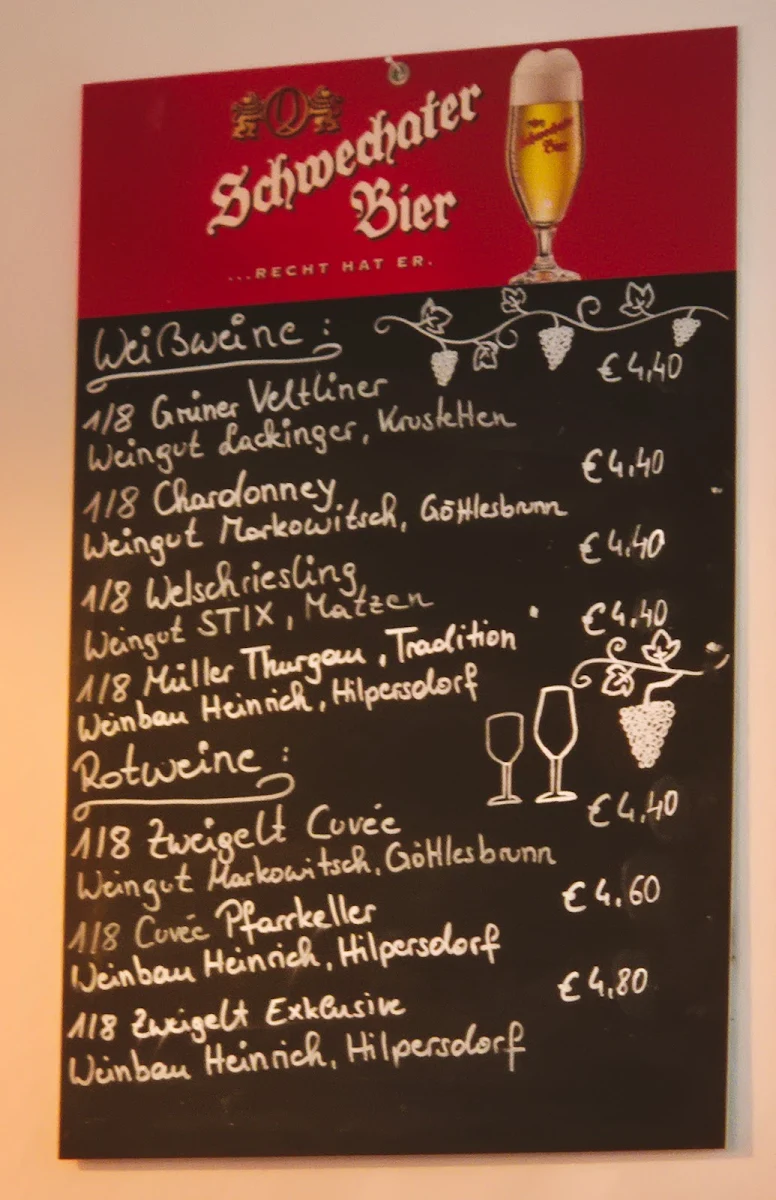 Schwechater
Bier
...RECHT HAT ER.
Weißweine:
€ 4,40
1/8 Grüner Veltliner
Weingut Lackinger, Krustetten
€ 4,40
1/8 Chardonney
Weingut Markowitsch, Göttlesbrunn
€ 4,40
1/8 Welschriesling
Weingut STIX, Matzen
€ 4,40
1/8 Müller Thurgau, Tradition
Weinbau Heinrich, Hilpersdorf
Rotweine:
€ 4,40
1/8 Zweigelt Cuvée
Weingut Markowitsch, Göttlesbrunn
€ 4.60
1/8 Cuvée Pfarrkeller
Weinbau Heinrich, Hilpersdorf
€ 4,80
1/8 Zweigelt Exklusive
Weinbau Heinrich, Hilpersdorf